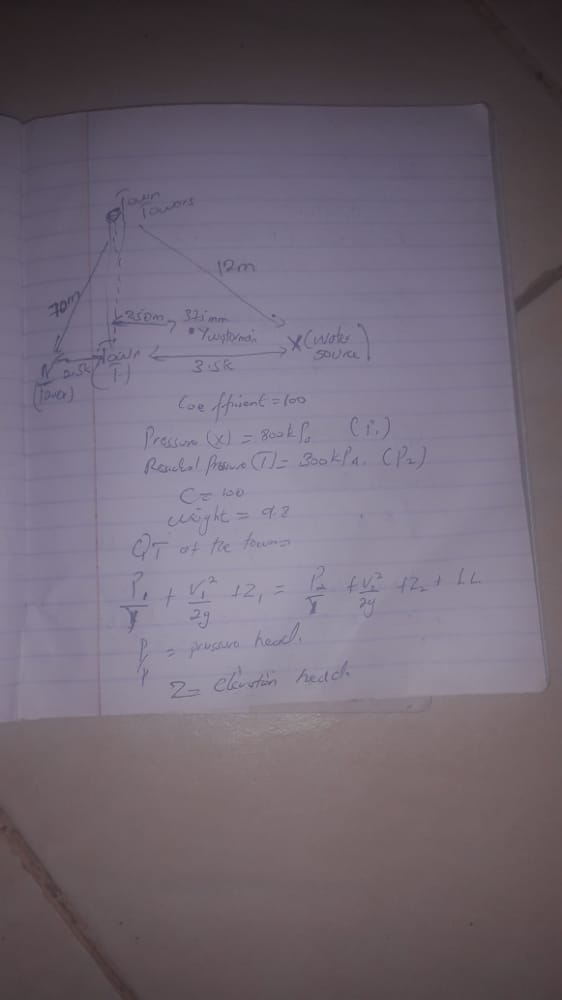 Town
Towers
70m
12m
250m
375mm
• Y watermain
X (water
source)
2.5k
Town
(T)
3.5k
(Tower)
Coefficient = 100
Pressure (X) = 800kPa (P1)
Residual Pressure (T) = 300kPa. (P2)
C = 100
weight = 9.8
QT at the town =
P1/γ + V1²/2g + Z1 = P2/γ + V2²/2g + Z2 + LL
P/γ = pressure head.
Z = elevation head.